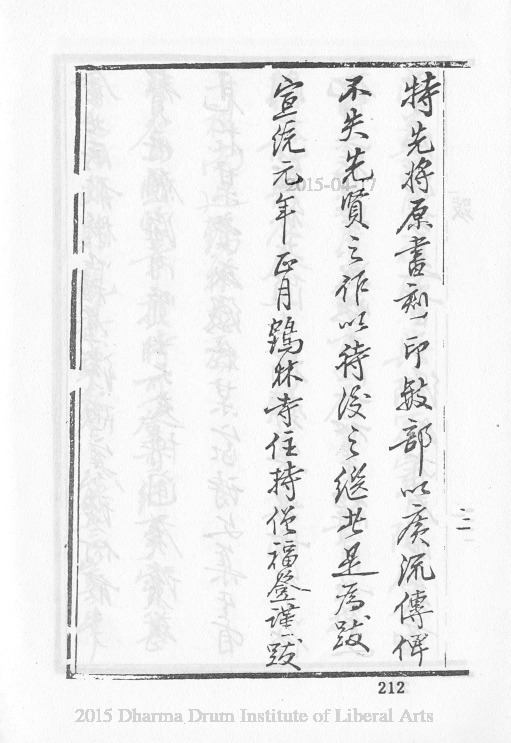 特先將原書刻印數部以廣流傳俾
不失先賢之作以待後之繼此是為跋
宣統元年正月鶴林寺住持僧福登謹跋
跋
二
212
2015-04-17
2015 Dharma Drum Institute of Liberal Arts